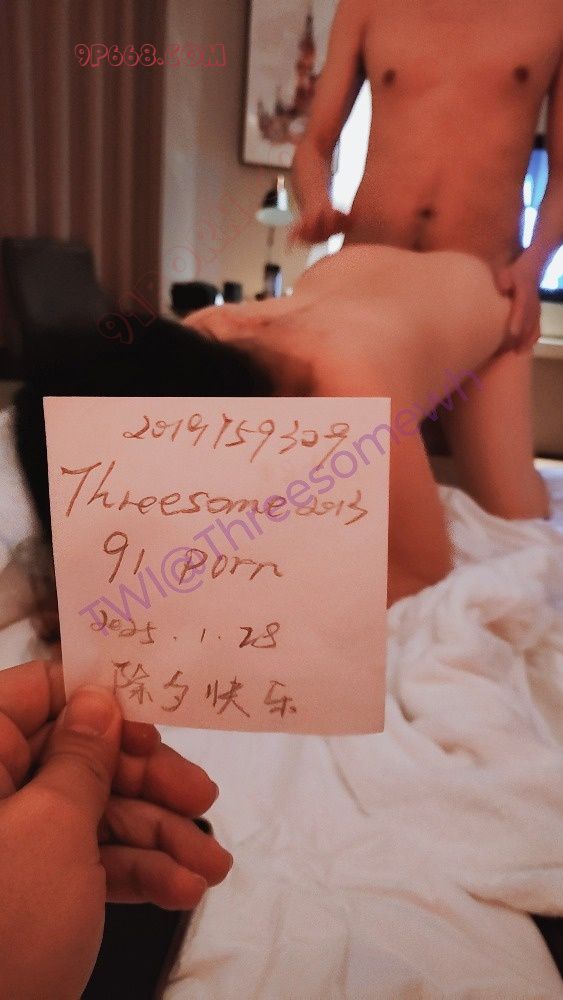 9P668.COM
91PORN
2019759309
Threesome2013
91 Porn
TWI@Threesomewh
2025.1.28
除夕快乐